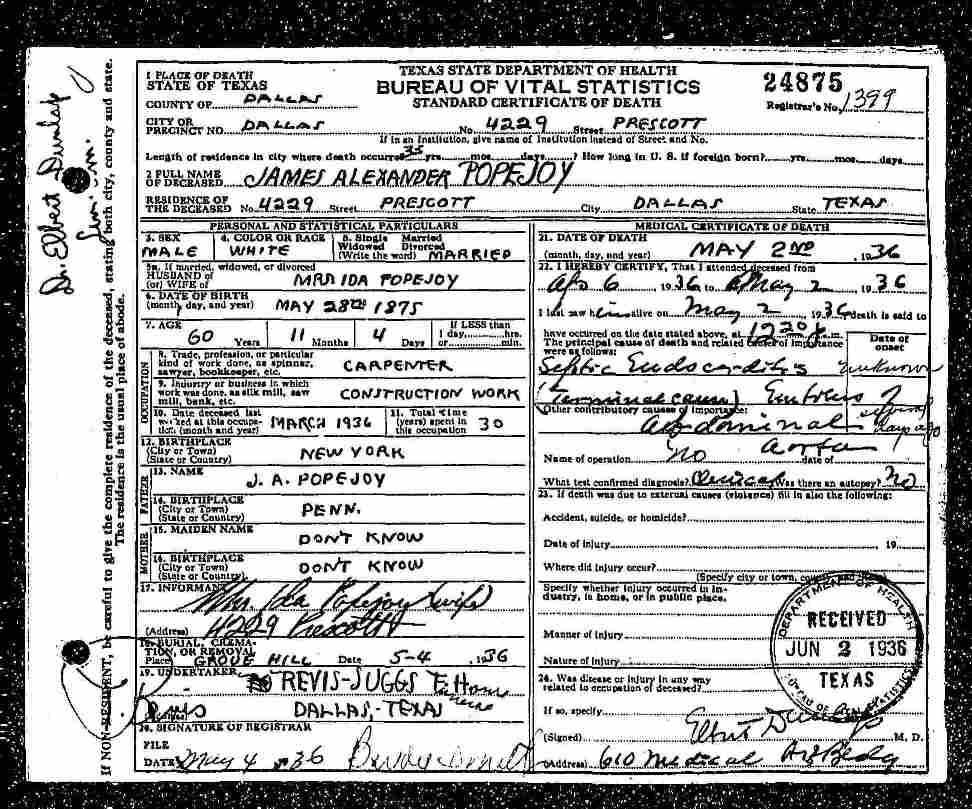 TEXAS STATE DEPARTMENT OF HEALTH
BUREAU OF VITAL STATISTICS
STANDARD CERTIFICATE OF DEATH
24875
Registrar's No. 1399
1 PLACE OF DEATH
STATE OF TEXAS
COUNTY OF DALLAS
CITY OR PRECINCT NO. DALLAS No. 4229 Street PRESCOTT
If in an Institution, give name of Institution instead of Street and No.
Length of residence in city where death occurred 35 yrs. mos. days. ? How long in U. S. if foreign born? yrs. mos. days.
2 FULL NAME OF DECEASED JAMES ALEXANDER POPEJOY
RESIDENCE OF THE DECEASED No. 4229 Street PRESCOTT City DALLAS State TEXAS
PERSONAL AND STATISTICAL PARTICULARS
3. SEX MALE
4. COLOR OR RACE WHITE
5. Single Married Widowed Divorced (Write the word) MARRIED
5a. If married, widowed, or divorced HUSBAND of (or) WIFE of MRS IDA POPEJOY
6. DATE OF BIRTH (month, day, and year) MAY 28TH 1875
7. AGE 60 Years 11 Months 4 Days If LESS than 1 day, hrs. or min.
OCCUPATION
8. Trade, profession, or particular kind of work done, as spinner, sawyer, bookkeeper, etc. CARPENTER
9. Industry or business in which work was done, as silk mill, saw mill, bank, etc. CONSTRUCTION WORK
10. Date deceased last worked at this occupation (month and year) MARCH 1936
11. Total time (years) spent in this occupation 30
12. BIRTHPLACE (City or Town) (State or Country) NEW YORK
FATHER
13. NAME J. A. POPEJOY
14. BIRTHPLACE (City or Town) (State or Country) PENN.
MOTHER
15. MAIDEN NAME DON'T KNOW
16. BIRTHPLACE (City or Town) (State or Country) DON'T KNOW
17. INFORMANT Mrs Ida Popejoy (wife)
(Address) 4229 Prescott
18. BURIAL, CREMATION, OR REMOVAL
Place GROVE HILL Date 5-4 , 1936
19. UNDERTAKER TREVIS-SUGGS F. Home
DALLAS, TEXAS
20. SIGNATURE OF REGISTRAR
FILE DATE May 4 36
MEDICAL CERTIFICATE OF DEATH
21. DATE OF DEATH (month, day, and year) MAY 2ND , 1936
22. I HEREBY CERTIFY, That I attended deceased from
Apr 6 , 1936 to May 2 , 1936
I last saw him alive on May 2 , 1936 death is said to
have occurred on the date stated above, at 1220 m.
The principal cause of death and related causes of importance were as follows:
Date of onset
Septic Endocarditis unknown
(Terminal cause) Embolus of
Other contributory causes of importance:
abdominal
aorta
days ago
Name of operation no date of
What test confirmed diagnosis? Clinical Was there an autopsy? No
23. If death was due to external causes (violence) fill in also the following:
Accident, suicide, or homicide?
Date of injury 19
Where did injury occur?
(Specify city or town, county and State)
Specify whether injury occurred in industry, in home, or in public place.
Manner of injury
Nature of injury
24. Was disease or injury in any way related to occupation of deceased?
If so, specify
(Signed) Elbert Dunlap M. D.
(Address) 610 Medical Arts Bldg
DEPARTMENT OF HEALTH
RECEIVED
JUN 2 1936
TEXAS
BUREAU OF VITAL STATISTICS
Dr. Elbert Dunlap
If NON-RESIDENT, be careful to give the complete residence of the deceased, stating both city, county and state.
The residence is the usual place of abode.